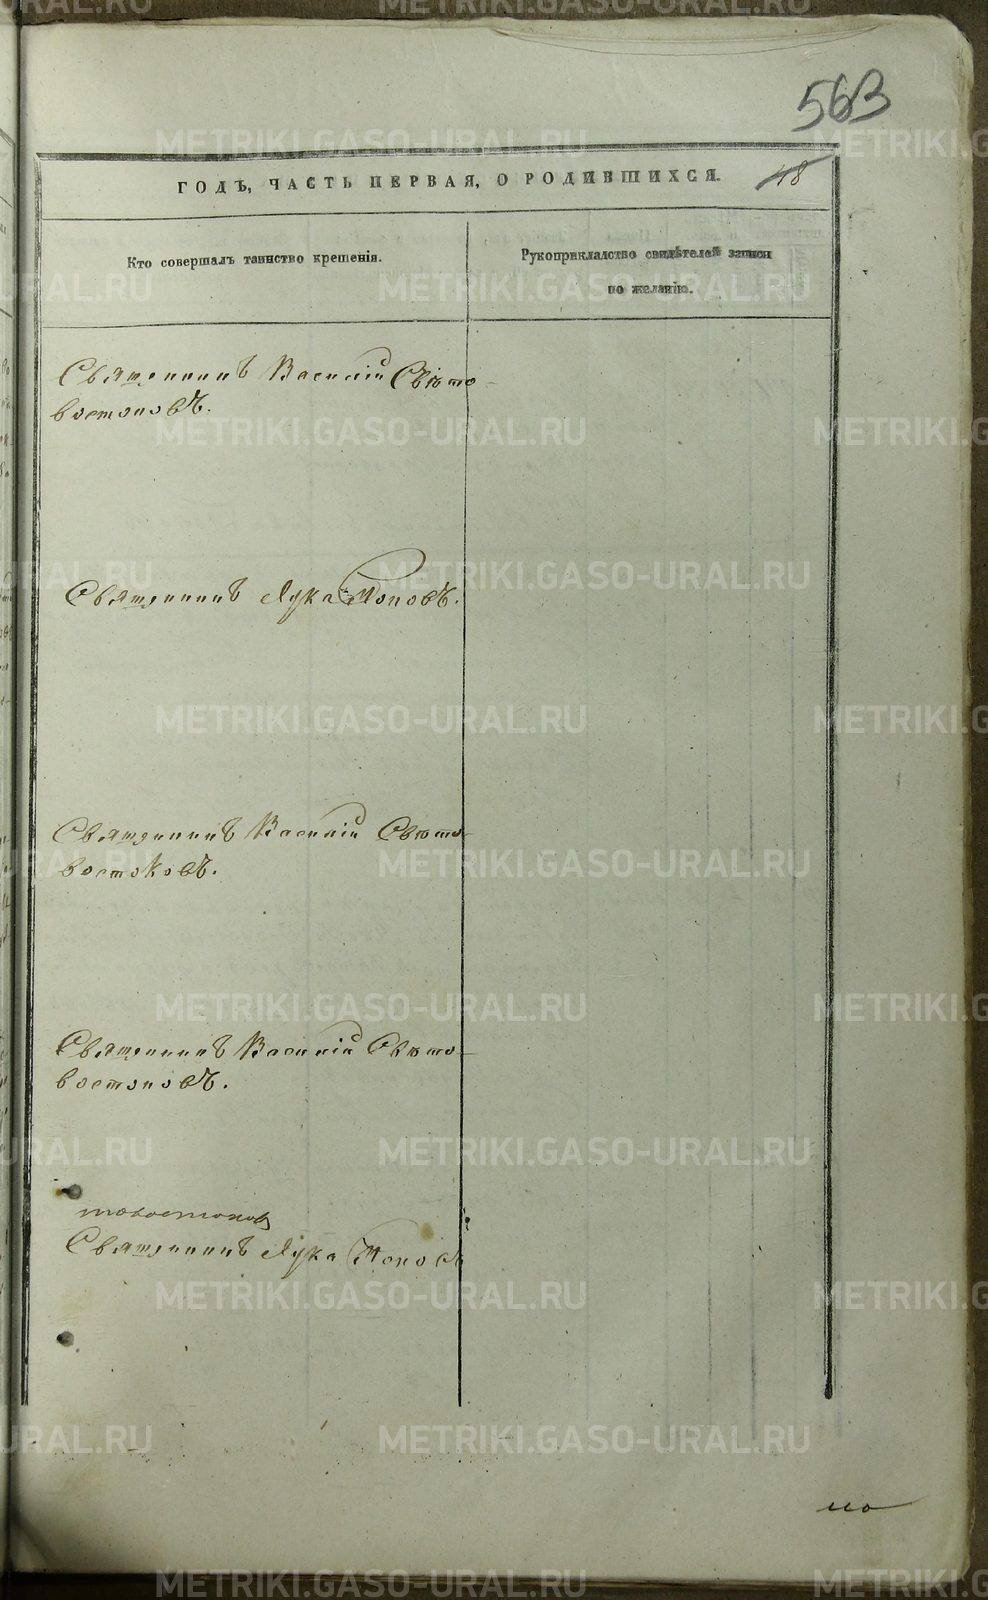 563
48
ГОДЪ, ЧАСТЬ ПЕРВАЯ, О РОДИВШИХСЯ.
Кто совершалъ таинство крещенія.
Рукоприкладство свидѣтелей записи
по желанію.
Священникъ Василій Свѣто-
востоковъ.
Священникъ Лука Поповъ.
Священникъ Василій Свѣто-
востоковъ.
Священникъ Василій Свѣто-
востоковъ.
товостоковъ
Священникъ Лука Поповъ
по
METRIKI.GASO-URAL.RU